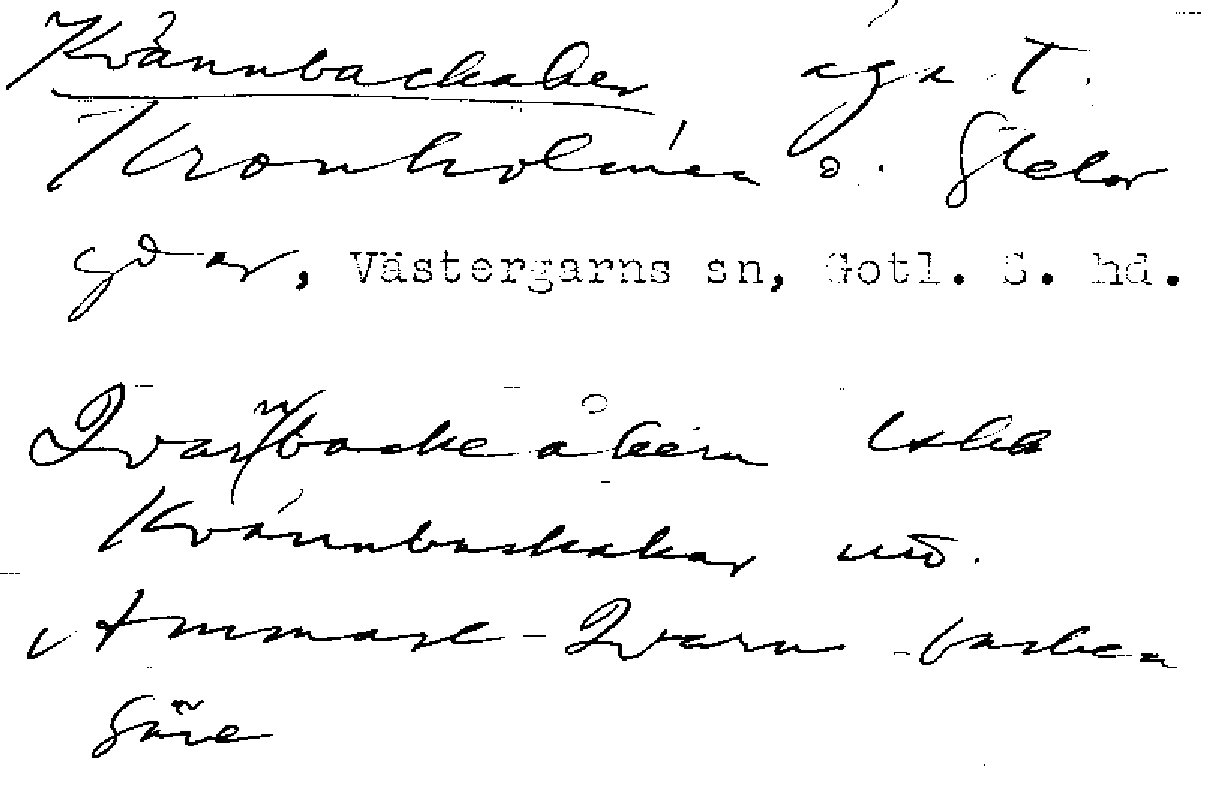 Kvännbackaker äga t.
Kronholmen o. Stelor
gdar, Västergarns sn, Gotl. S. hd.
Qvarnbacke åkern
Kvännbackakar
Ammase - Qvarn backen